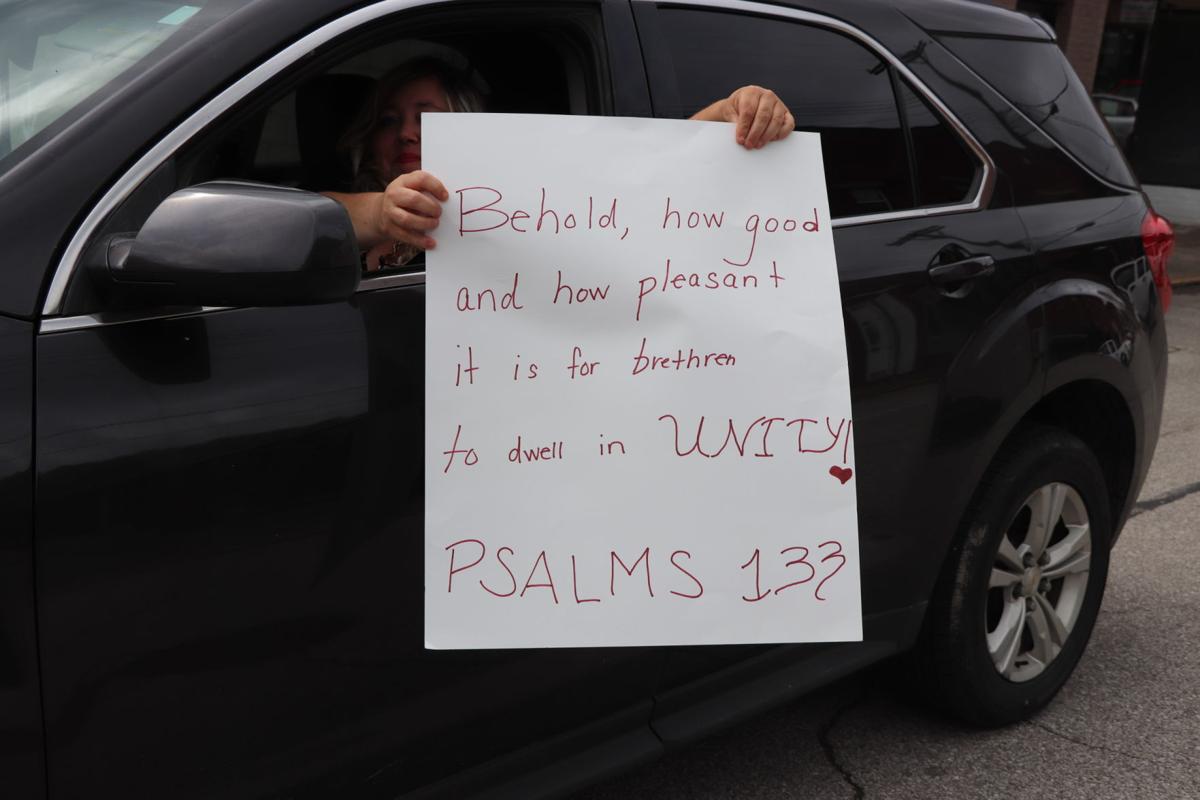 Behold, how good
and how pleasant
it is for brethren
to dwell in UNITY!
PSALMS 133